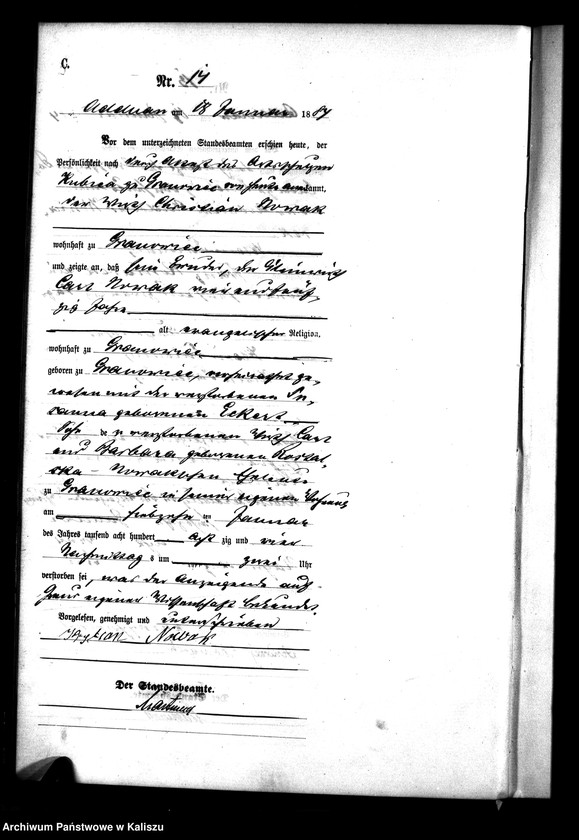 C.
Nr. 14
Adelnau am 18 Januar 1884
Vor dem unterzeichneten Standesbeamten erschien heute, der
Persönlichkeit nach durch Attest des Ortsschulzen
Kubica zu Granowiec von heute anerkannt,
der Wirth Christian Nowak
wohnhaft zu Granowiec
und zeigte an, daß sein Bruder, der
Carl Nowak vier und fünf
zig Jahre
alt evangelischer Religion,
wohnhaft zu Granowiec
geboren zu Granowiec, verheirathet ge-
wesen mit der verstorbenen Su-
sanna geborenen Eckert
Sohn der verstorbenen Wirth Carl
und Barbara geborenen
Nowakschen Eheleute
zu Granowiec in seiner eigenen Wohnung
am siebzehn ten Januar
des Jahres tausend acht hundert acht zig und vier
Nachmittag s um zwei Uhr
verstorben sei, was der Anzeigende auf
Grund eigener Wissenschaft bekundet.
Vorgelesen, genehmigt und unterschrieben
Nowak
Der Standesbeamte.
Archiwum Państwowe w Kaliszu